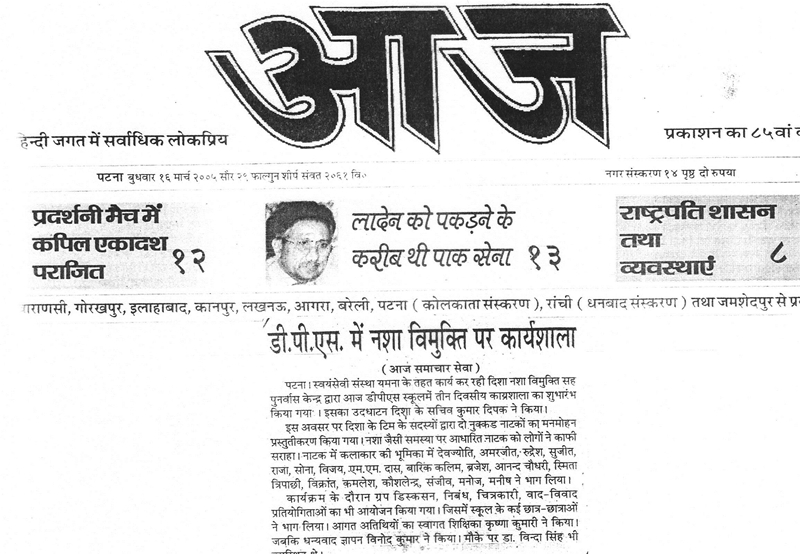 आज
हिन्दी जगत में सर्वाधिक लोकप्रिय
प्रकाशन का ८५वां
पटना बुधवार १६ मार्च २००५ सौर २९ फाल्गुन शीर्ष संवत २०६१ वि०
नगर संस्करण १४ पृष्ठ दो रुपया
प्रदर्शनी मैच में
कपिल एकादश
पराजित १२
लादेन को पकड़ने के
करीब थी पाक सेना १३
राष्ट्रपति शासन
तथा
व्यवस्थाएं ८
गोरखपुर, इलाहाबाद, कानपुर, लखनऊ, आगरा, बरेली, पटना ( कोलकाता संस्करण ), रांची ( धनबाद संस्करण ) तथा जमशेदपुर से
डी.पी.एस. में नशा विमुक्ति पर कार्यशाला
( आज समाचार सेवा )
पटना। स्वयंसेवी संस्था यमना के तहत कार्य कर रही दिशा नशा विमुक्ति सह
पुनर्वास केन्द्र द्वारा आज डीपीएस स्कूलमें तीन दिवसीय काय्रशाला का शुभारंभ
किया गया । इसका उदधाटन दिशा के सचिव कुमार दिपक ने किया।
इस अवसर पर दिशा के टिम के सदस्यों द्वारा दो नुक्कड नाटकों का मनमोहन
प्रस्तुतीकरण किया गया। नशा जैसी समस्या पर आधारित नाटक को लोगों ने काफी
सराहा। नाटक में कलाकार की भूमिका में देवज्योति, अमरजीत, रुद्रेश, सुजीत,
राजा, सोना, विजय, एम.एम. दास, बारिक कलिम, ब्रजेश, आनन्द चौधरी, स्मिता
त्रिपाठी, विक्रांत, कमलेश, कौशलेन्द्र, संजीव, मनोज, मनीष ने भाग लिया।
कार्यक्रम के दौरान ग्रप डिस्कसन, निबंध, चित्रकारी, वाद-विवाद
प्रतियोगिताओं का भी आयोजन किया गया। जिसमें स्कूल के कई छात्र-छात्राओं
ने भाग लिया। आगत अतिथियों का स्वागत शिक्षिका कृष्णा कुमारी ने किया।
जबकि धन्यवाद ज्ञापन विनोद कुमार ने किया। मौके पर डा. विन्दा सिंह भी